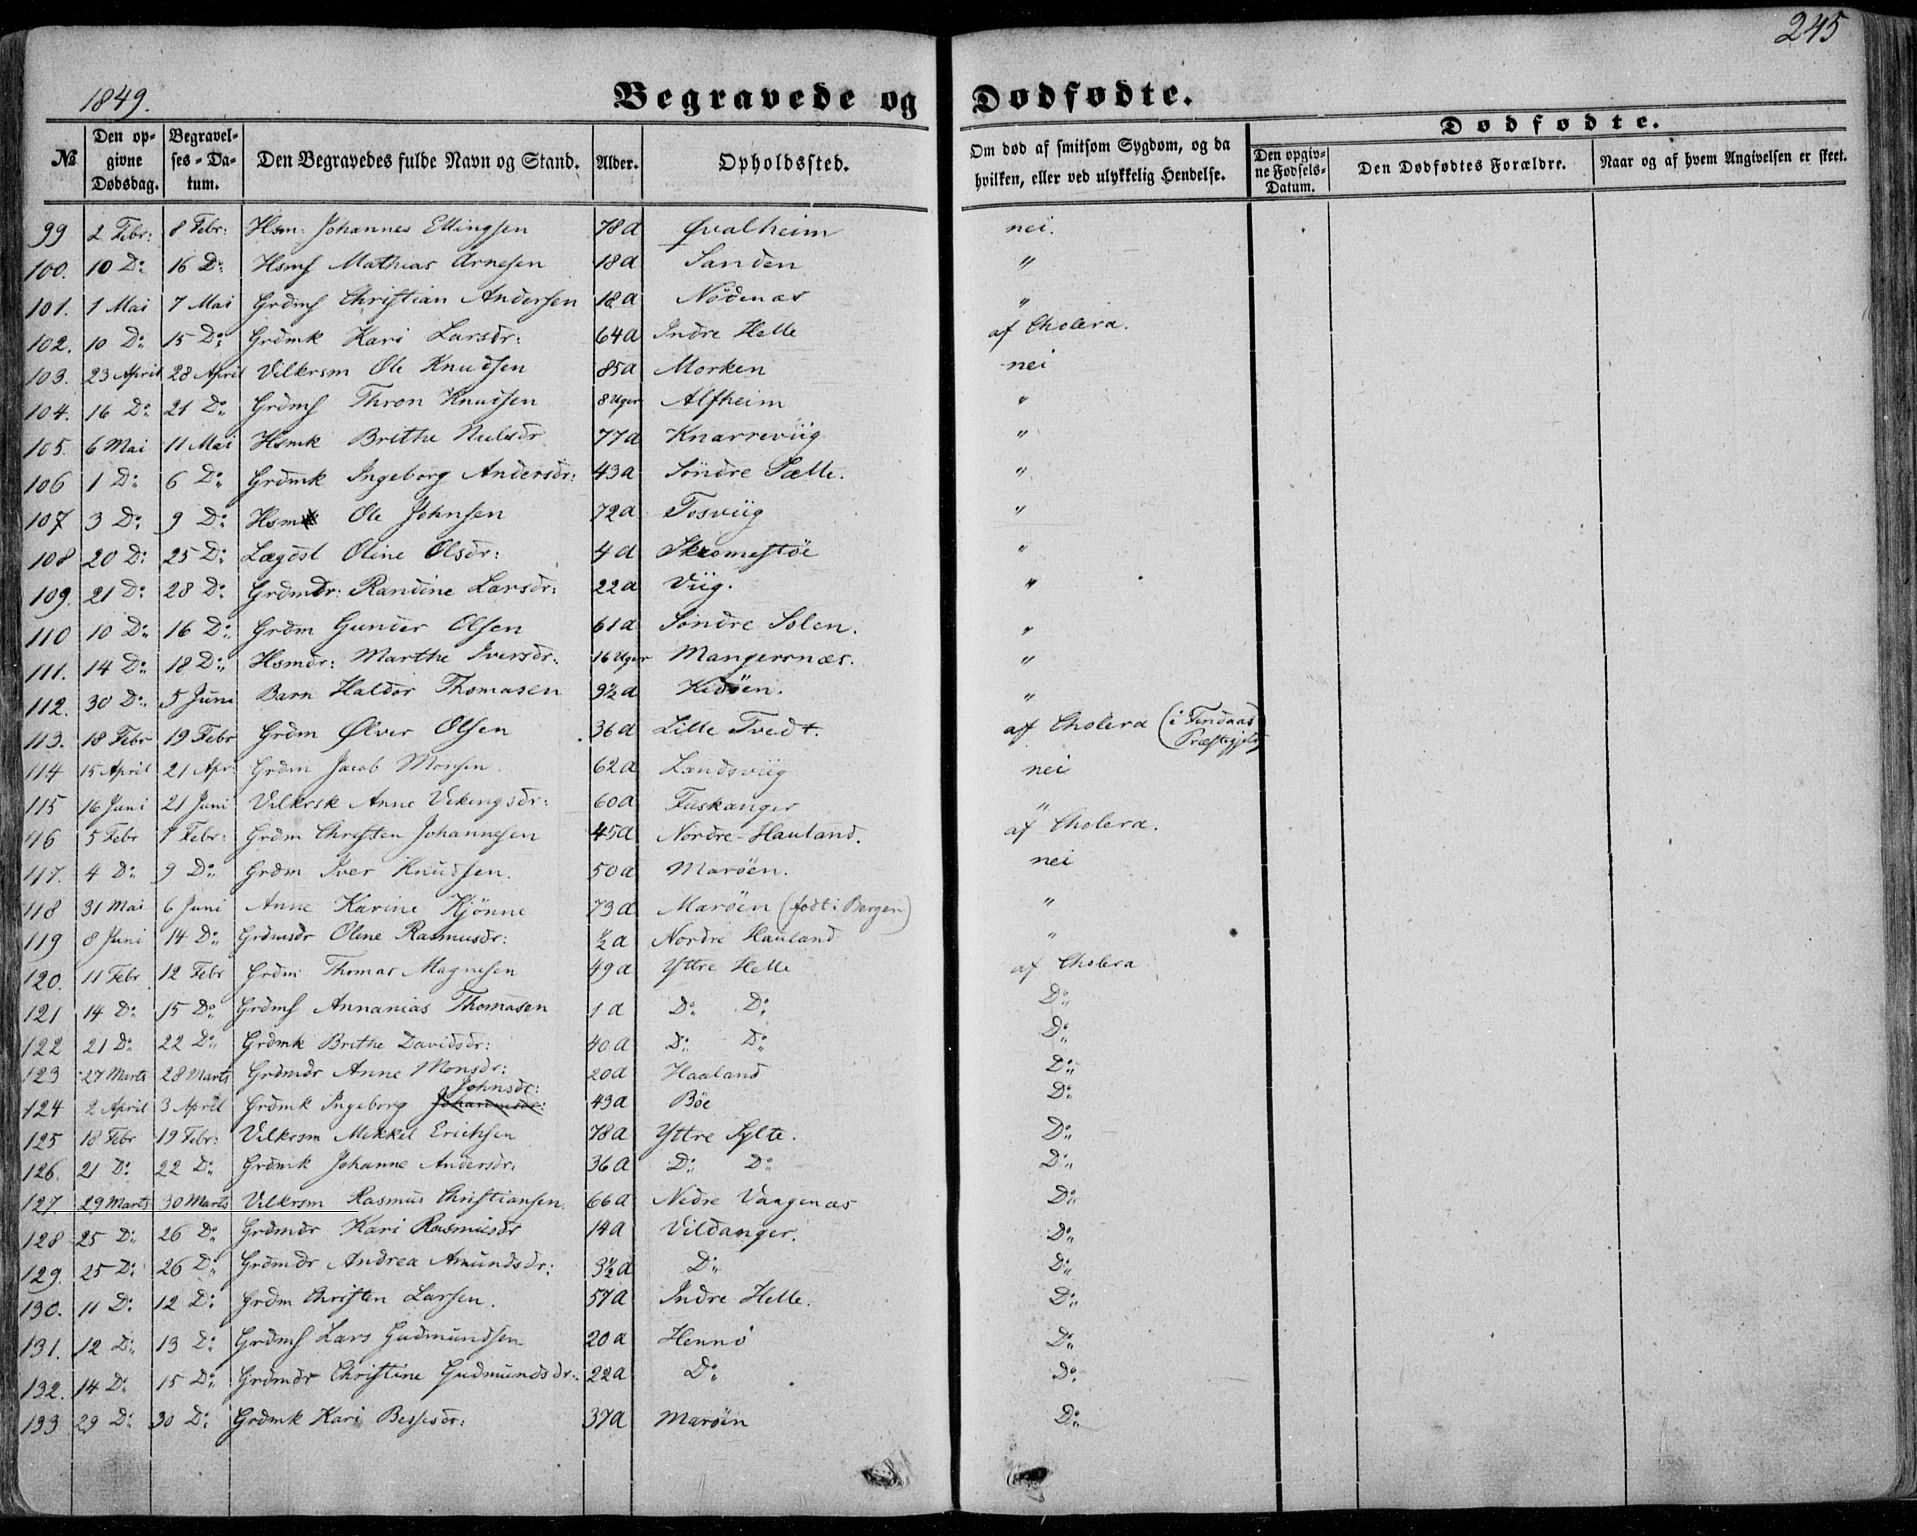 245
1849.
Begravede og Dødfødte.
Dødfødte.
No.
Den op-
givne
Dødsdag.
Begravel-
ses-Da-
tum.
Den Begravedes fulde Navn og Stand.
Alder.
Opholdssted.
Om død af smitsom Sygdom, og da
hvilken, eller ved ulykkelig Hendelse.
Den opgiv-
ne Fødsels-
Datum.
Den Dødfødtes Forældre.
Naar og af hvem Angivelsen er skeet.
99 2 Febr: 8 Febr: Hsm: Johannes Ellingsen 78a Qvalheim nei.
100. 10 D: 16 D: Hsms Mathias Arnesen 18a Sanden "
101. 1 Mai 7 Mai Grdms Christian Andersen 18a Nödenæs "
102. 10 D: 15 D: Grdmk Kari Larsdr: 64a Indre Helle af Cholera.
103. 23 April 28 April Vilkrsm Ole Knudsen 85a Morken nei
104. 16 D: 21 D: Grdms Thron Knudsen 8 Uger Alfheim "
105. 6 Mai 11 Mai Hsmk Brithe Nielsdr 77a Knarreviig "
106 1 D: 6 D: Grdmk Ingeborg Andersdr: 43a Söndre Sælle. "
107 3 D: 9 D: Hsm Ole Johnsen 72a Tosviig "
108 20 D: 25 D: Lægdsl Oline Olsdr: 4a Skromestöe "
109. 21 D: 28 D: Grdmdr: Randine Larsdr: 22a Viig. "
110 10 D: 16 D: Grdm Gunder Olsen 61a Söndre Solen. "
111. 14 D: 18 D: Hsmdr: Marthe Iversdr: 16 Uger Mangersnæs. "
112. 30 D: 5 Juni Barn Haldor Thomasen 9½a Kidöen. "
113. 18 Febr 19 Febr Grdm Ølver Olsen 36a Lille Tvedt. af Cholera (i Findaas
Præstegjeld)
114 15 April 21 Apr: Grdm Jacob Monsen 62a Landsviig nei
115 16 Juni 21 Juni Vilkrsk Anne Vikingsdr: 60a Fuskanger "
116 5 Febr 7 Febr: Grdm Christen Johannesen 45a Nordre-Hauland. af Cholera.
117. 4 D: 9 D: Grdm Iver Knudsen. 50a Maröen. nei
118 31 Mai 6 Juni Anne Karine Kjönne 73a Maröen (födt i Bergen) "
119 8 Juni 14 D: Grdmsdr Oline Rasmusdr: ½a Nordre Hauland "
120. 11 Febr 12 Febr Grdm Thomas Magnesen 49a Yttre Helle af Cholera
121 14 D: 15 D: Grdms Annanias Thomasen 1a D: D: D:
122 21 D: 22 D: Grdmk Brithe Davidsdr: 40a D: D: D:
123 27 Marts 28 Marts Grdmdr Anne Monsdr: 20a Haaland D:
Johnsdr:
124 2 April 3 April Grdmk Ingeborg Johannesdr: 43a Böe D:
125 18 Febr 19 Febr: Vilkrsm Mikkel Erichsen 78a Yttre Sylte. D:
126. 21 D: 22 D: Grdmk Johanne Andersdr: 36a D: D: D:
127. 29 Marts 30 Marts Vilkrsm Rasmus Christiansen. 66a Nedre Vaagenæs D:
128 25 D: 26 D: Grdmdr Kari Rasmusdr 14a Vildanger. D:
129. 25 D: 26 D: Grdmdr Andrea Amundsdr: 3½a D: D:
130. 11 D: 12 D: Grdm Christen Larsen. 57a Indre Helle. D:
131. 12 D: 13 D: Grdms Lars Gudmundsen 20a Hennö D:
132. 14 D: 15 D: Grdmdr Christine Gudmundsdr: 22a D: D:
133 29 D: 30 D: Grdmk Kari Bessesdr: 37a Maröen D: